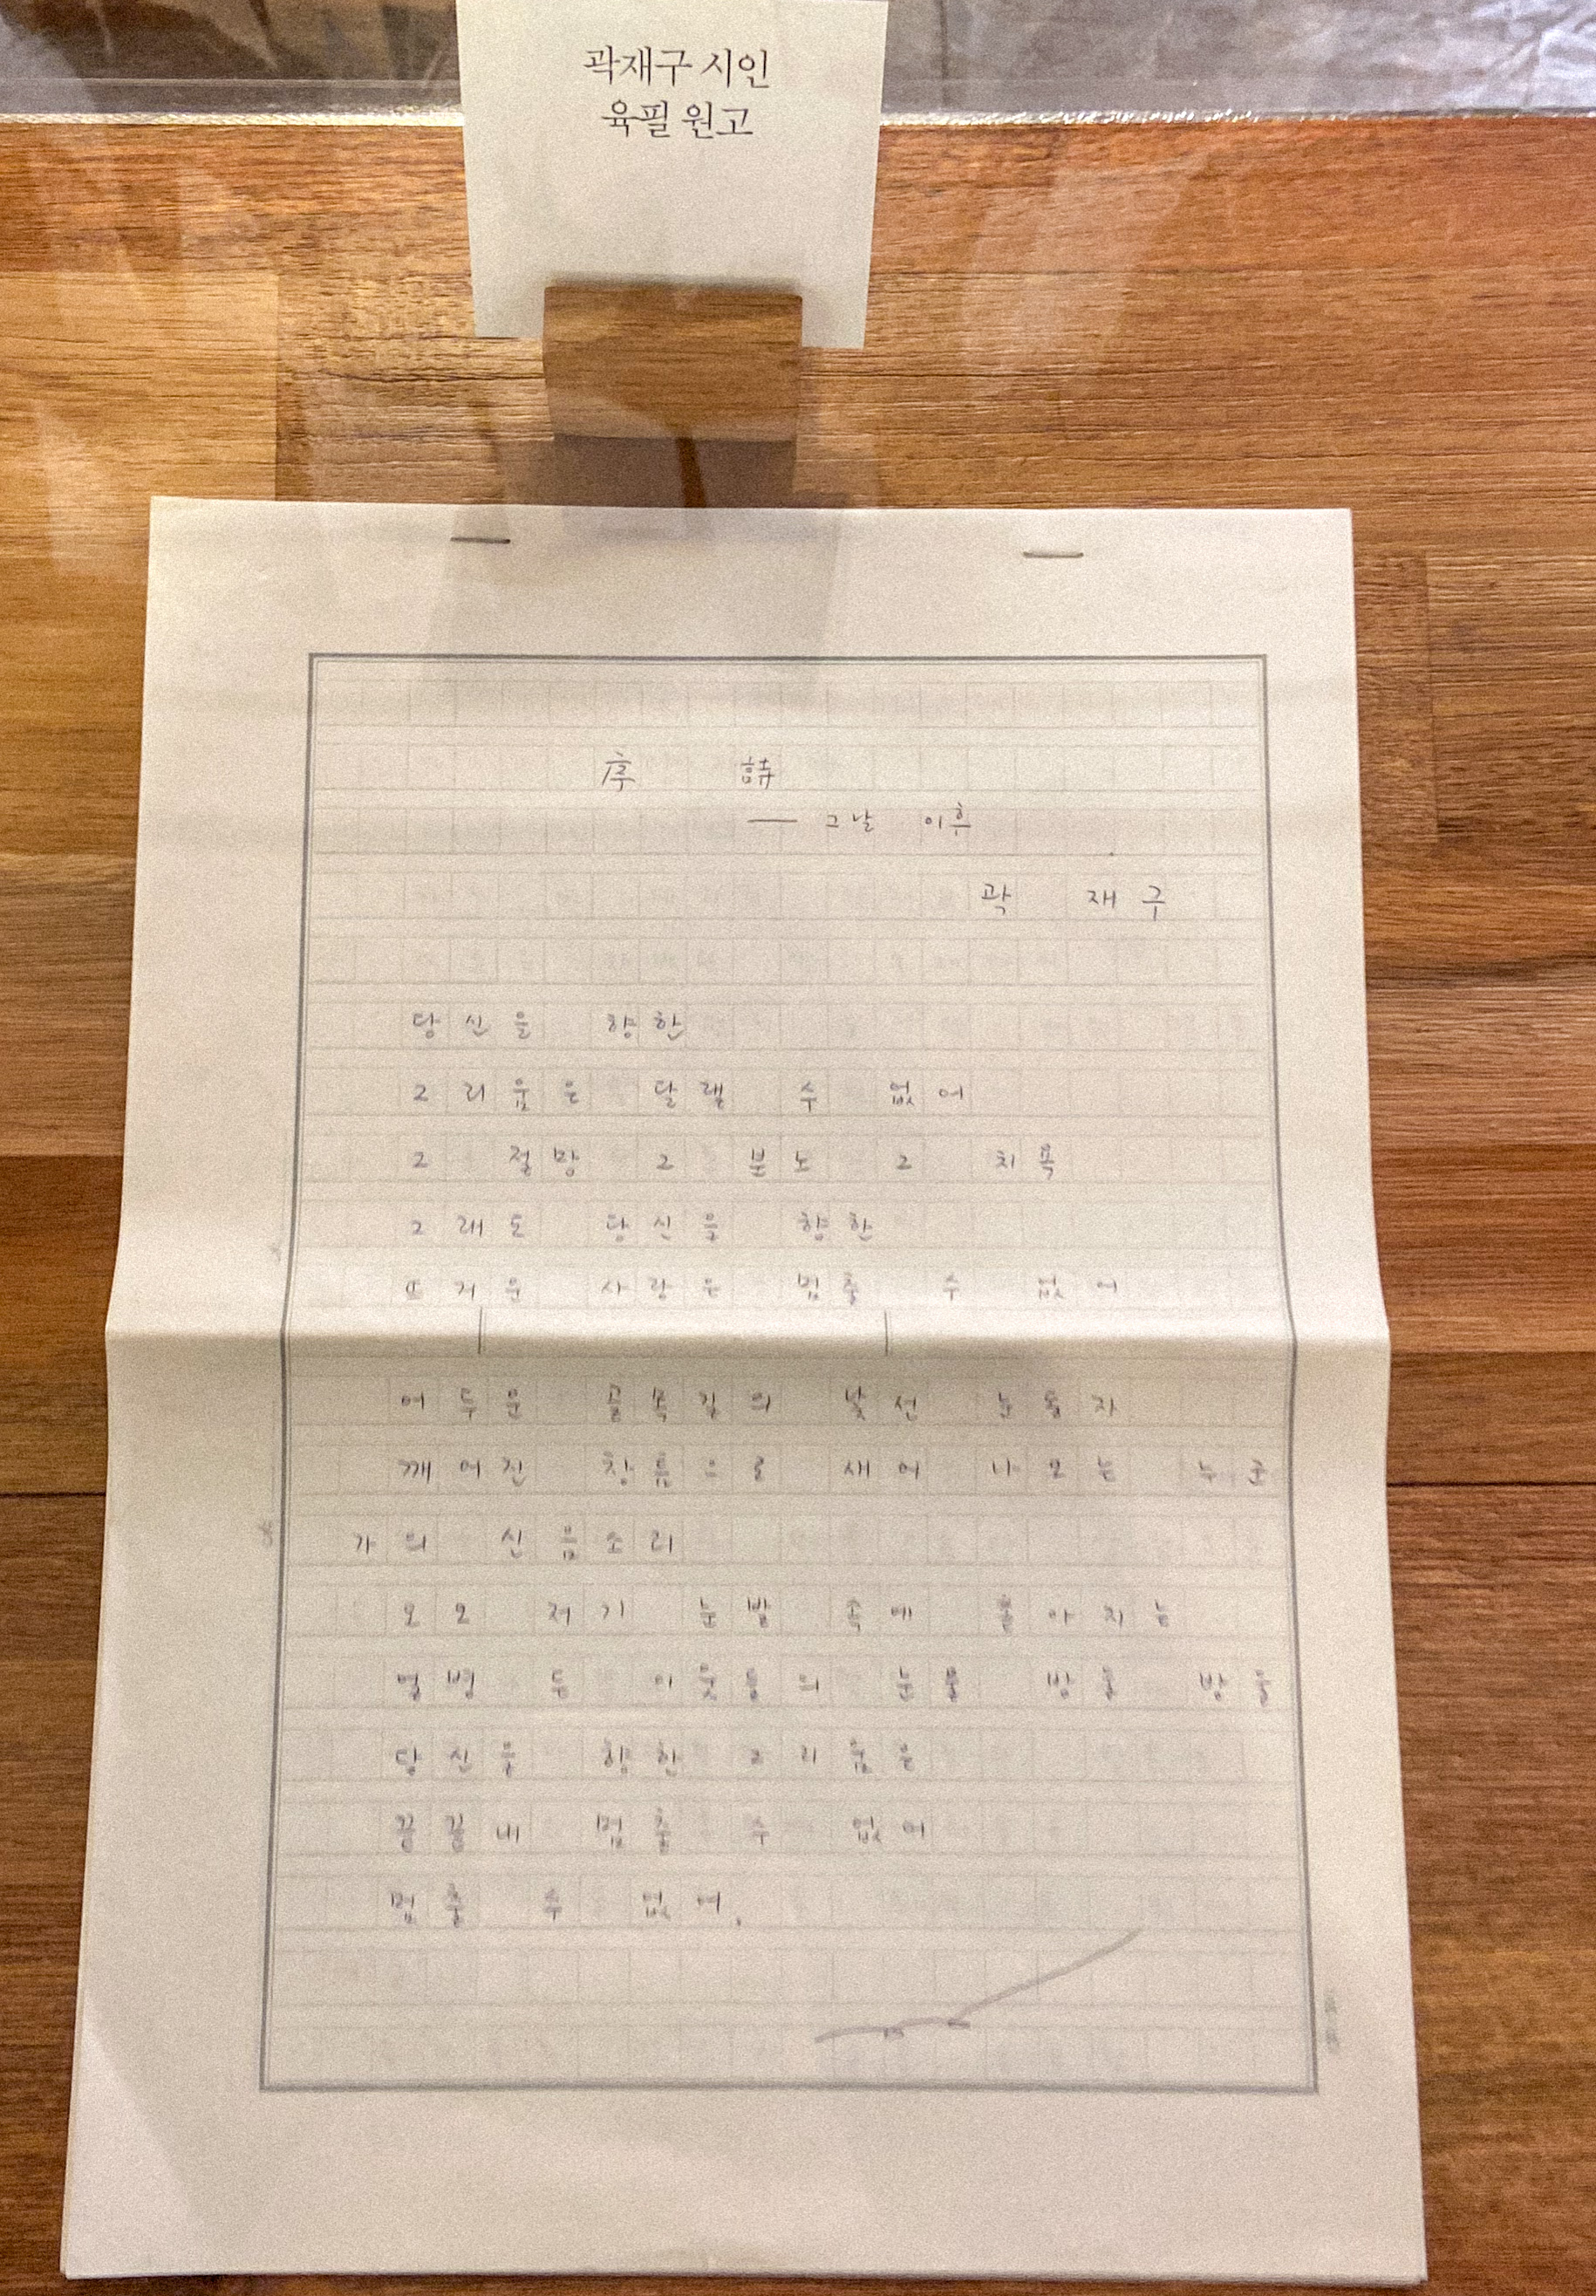 곽재구 시인
육필 원고
序 詩
— 그날 이후
곽 재구
당신을 향한
그리움은 달랠 수 없어
그 절망 그 분노 그 치욕
그래도 당신을 향한
뜨거운 사랑은 멈출 수 없어
어두운 골목길의 낯선 눈동자
깨어진 창틈으로 새어 나오는 누군
가의 신음소리
오오 저기 눈발 속에 쏟아지는
몇 이웃들의 눈물 방울 방울
당신을 향한 그리움은
끝끝내 멈출 수 없어
멈출 수 없어.